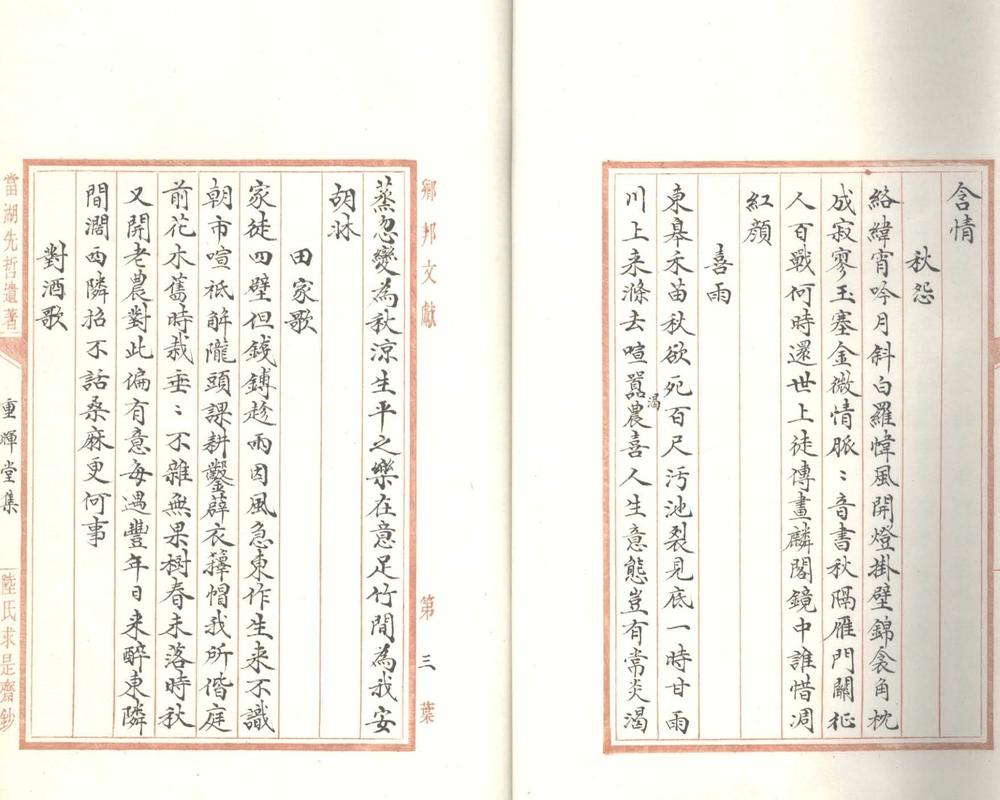 含情
秋怨
絡緯宵吟月斜白羅幃風開燈掛壁錦衾角枕
成寂寥玉塞金微情脈〻音書秋隔雁門關征
人百戰何時還世上徒傳畫麟閣鏡中誰惜凋
紅顏
喜雨
東皋禾苗秋欲死百尺汚池裂見底一時甘雨
川上來滌去喧囂農喜人生意態豈有常炎渴
渴
鄉邦文獻
第三葉
蒸忽變為秋涼生平之樂在意足竹間為我安
胡牀
田家歌
家徒四壁但錢鎛趁雨因風急東作生來不識
朝市喧祗解隴頭課耕鑿薜衣籜帽我所偕庭
前花木舊時栽垂〻不雜無果樹春未落時秋
又開老農對此偏有意每遇豐年日来醉東隣
間濶西隣招不話桑麻更何事
對酒歌
當湖先哲遺著
重暉堂集
陸氏求是齋鈔